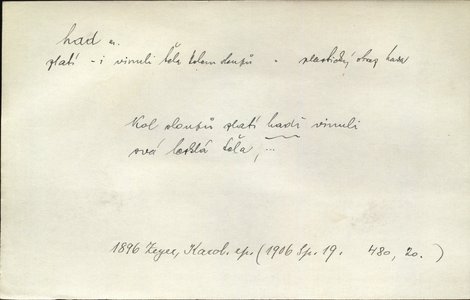 had m.
zlatí - i vinuli těla kolem sloupů - plastický obraz
Kol sloupů zlatí hadi vinuli
svá lesklá těla, ...
1896 Zeyer, Karol. ep. (1906 Sp. 19. 480, 20.)